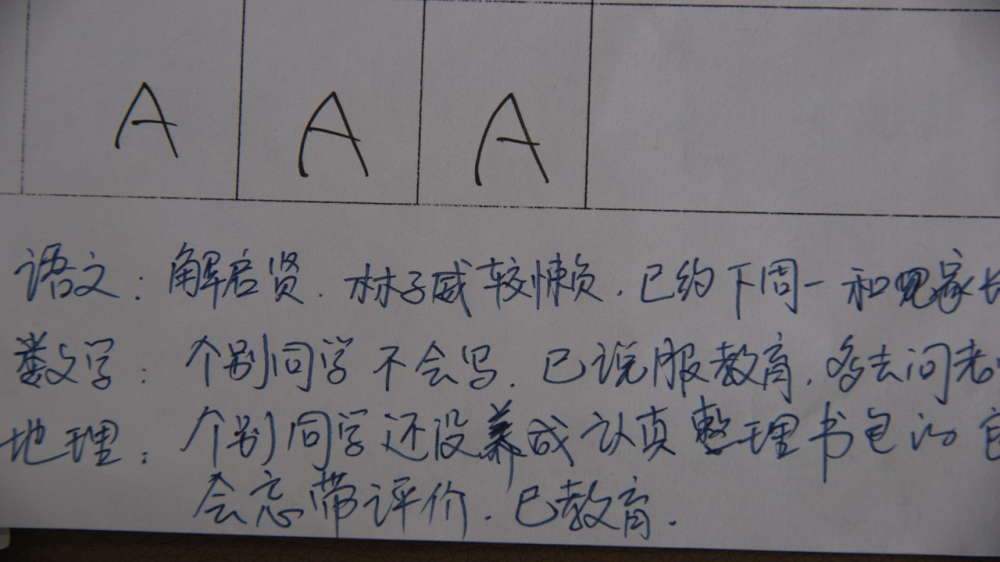 A A A
语文：解启贤．林子威较懒．已约下周一和见家长
数学：个别同学不会写．已说服教育．多去问老
地理：个别同学还没养成认真整理书包的
会忘带评价．已教育．